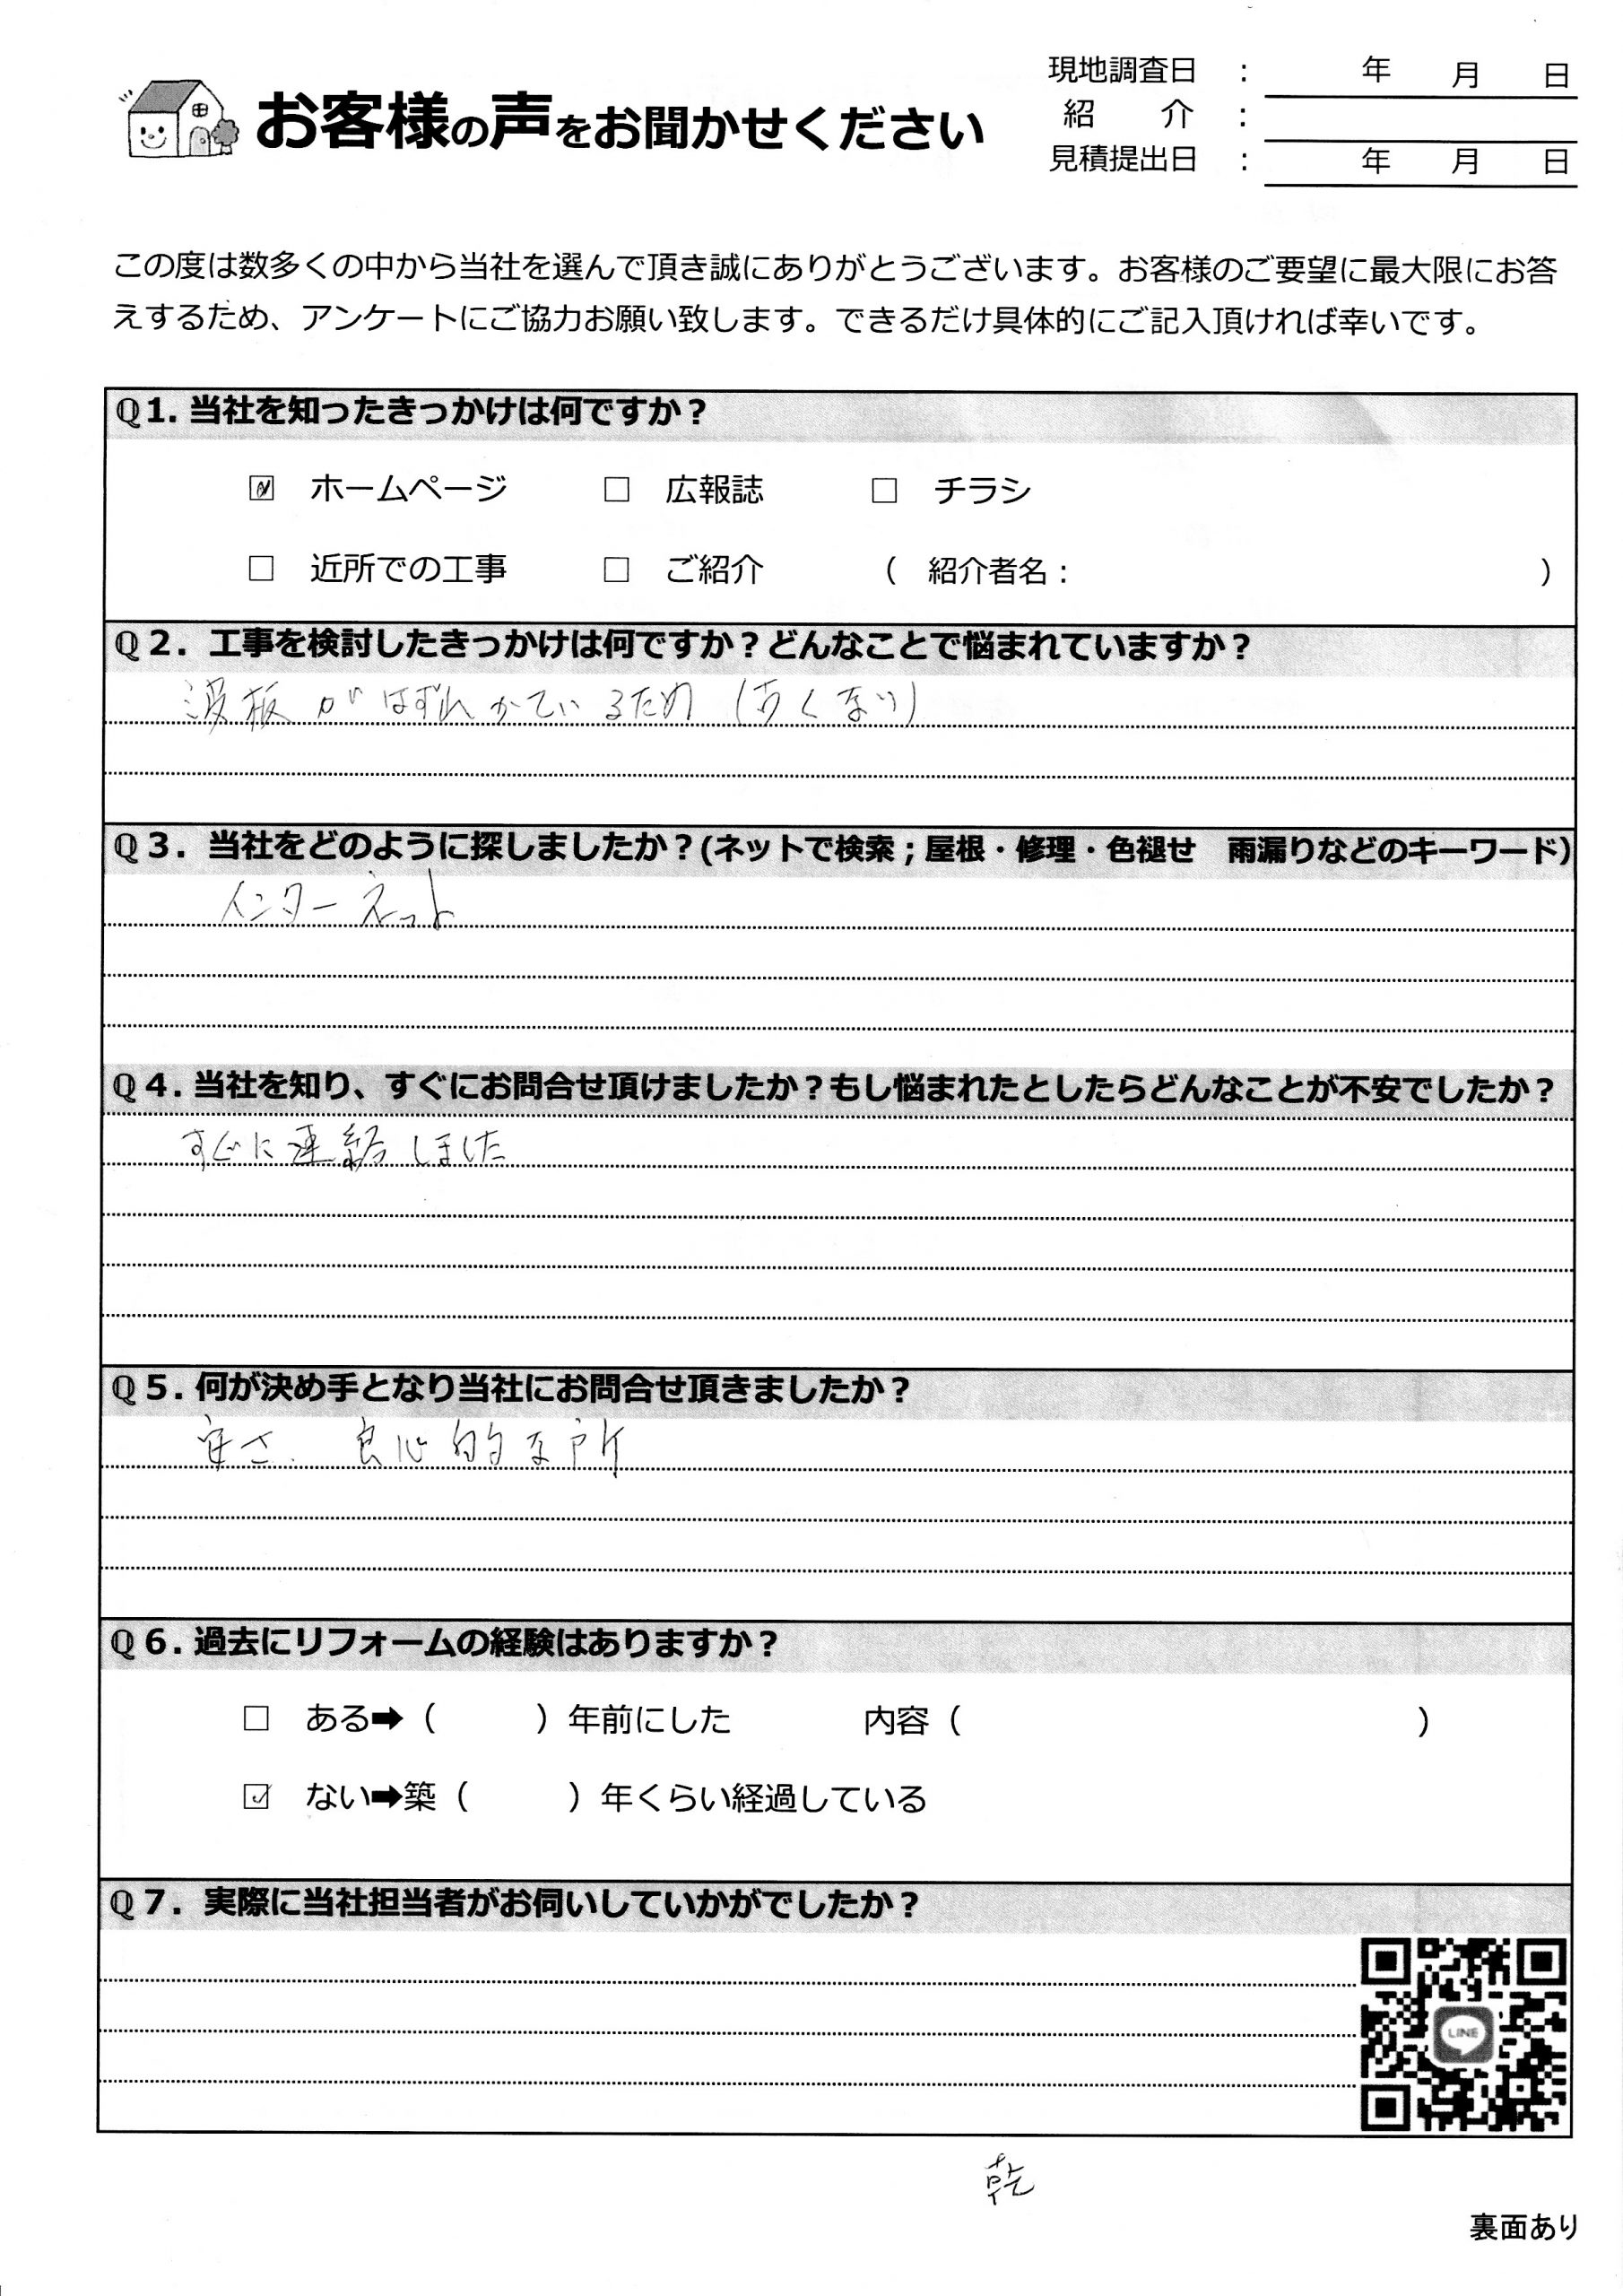 お客様の声をお聞かせください
現地調査日 : 年 月 日
紹 介 :
見積提出日 : 年 月 日
この度は数多くの中から当社を選んで頂き誠にありがとうございます。お客様のご要望に最大限にお答
えするため、アンケートにご協力お願い致します。できるだけ具体的にご記入頂ければ幸いです。
Q1. 当社を知ったきっかけは何ですか？
☑ ホームページ □ 広報誌 □ チラシ
□ 近所での工事 □ ご紹介 （ 紹介者名： ）
Q２．工事を検討したきっかけは何ですか？どんなことで悩まれていますか？
波板がはずれかているため（古くなり）
Q３．当社をどのように探しましたか？(ネットで検索；屋根・修理・色褪せ 雨漏りなどのキーワード）
インターネット
Q４. 当社を知り、すぐにお問合せ頂けましたか？もし悩まれたとしたらどんなことが不安でしたか？
すぐに連絡しました
Q５. 何が決め手となり当社にお問合せ頂きましたか？
安さ、良心的な所
Q６. 過去にリフォームの経験はありますか？
□ ある➡（ ）年前にした 内容（ ）
☑ ない➡築（ ）年くらい経過している
Q７．実際に当社担当者がお伺いしていかがでしたか？
LINE
乾
裏面あり